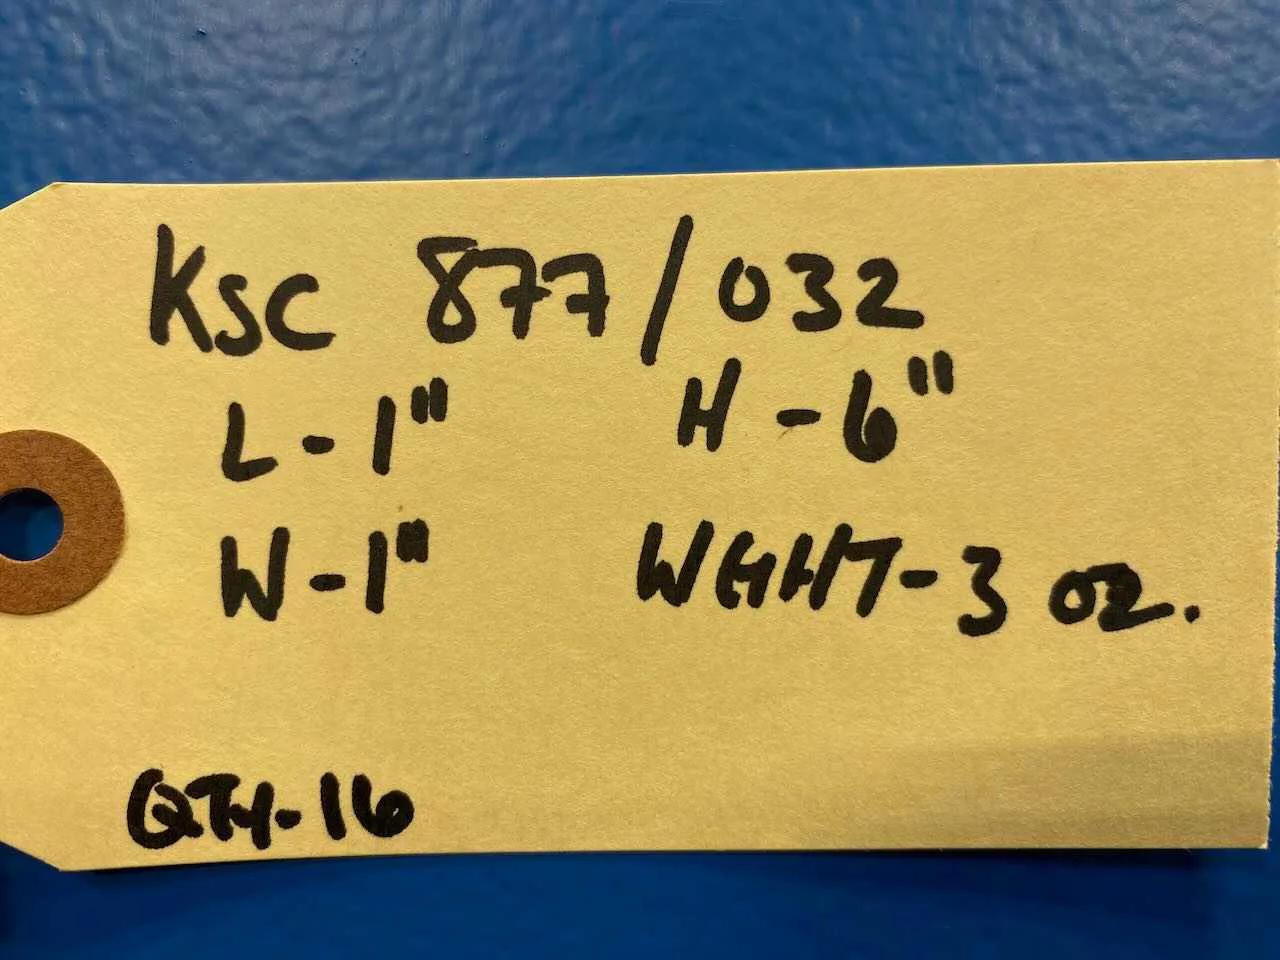 KSC 877/032
L-1" H-6"
W-1" WGHT-3 oz.
QTY-16